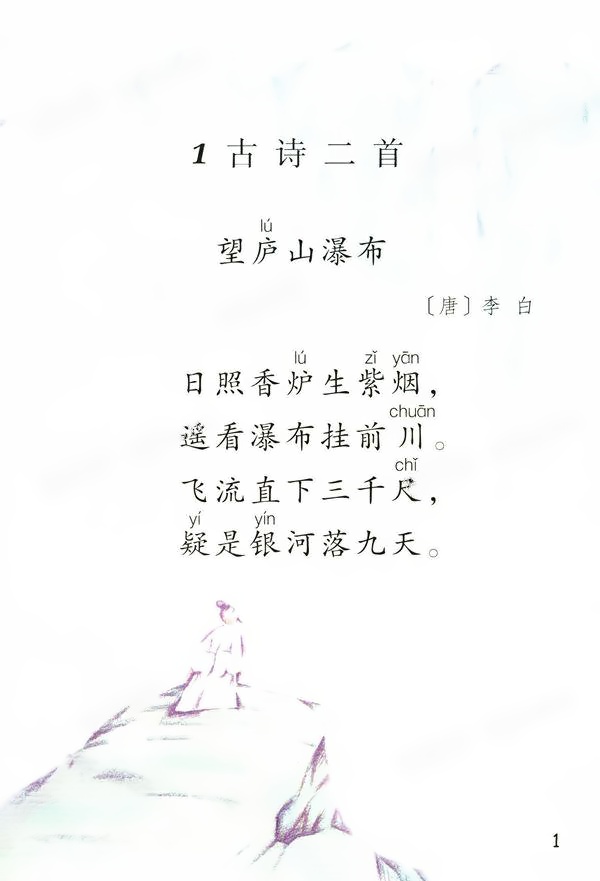 1 古诗二首
lú
望庐山瀑布
〔唐〕李 白
lú zǐ yān
日照香炉生紫烟，
chuān
遥看瀑布挂前川。
chǐ
飞流直下三千尺，
yí yín
疑是银河落九天。
1